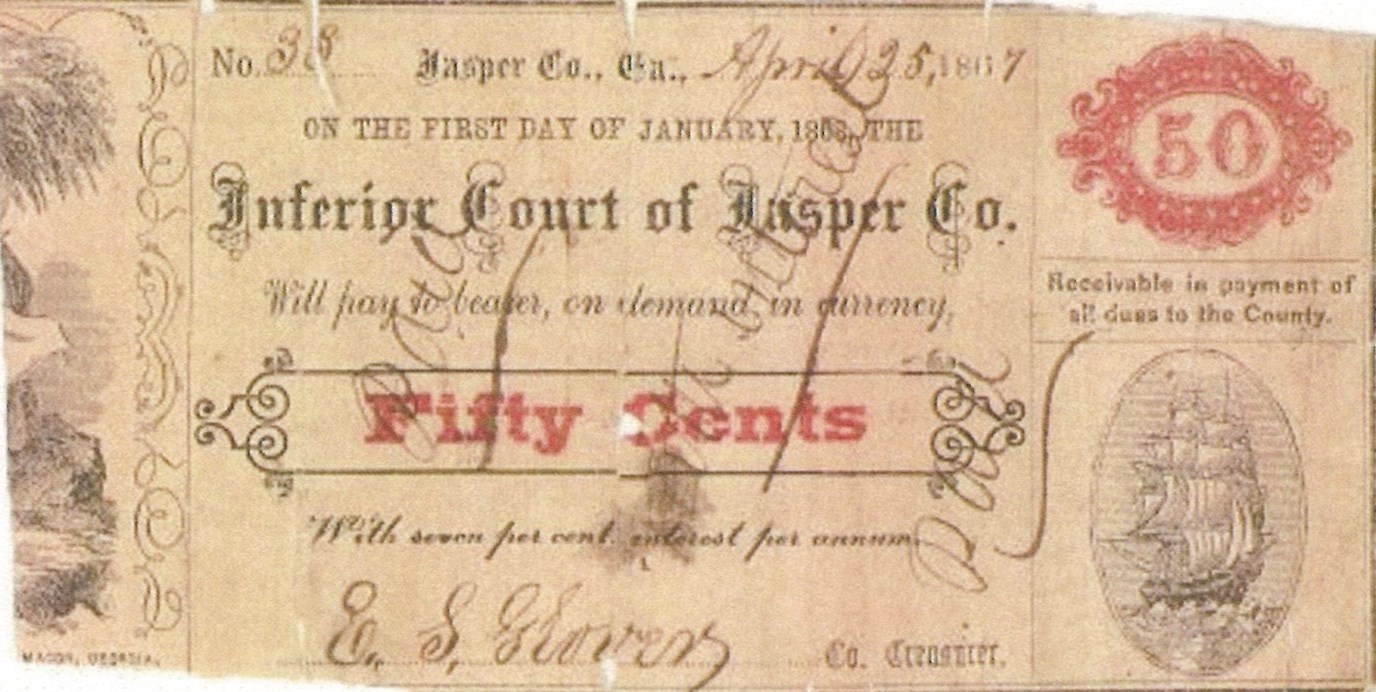 No. 38 Jasper Co., Ga., April 25, 1867
ON THE FIRST DAY OF JANUARY, 1868, THE
Inferior Court of Jasper Co.
Will pay to bearer, on demand, in currency,
Fifty Cents
With seven per cent. interest per annum.
E. S. Glover Co. Treasurer.
50
Receivable in payment of
all dues to the County.
MACON, GEORGIA.
Paid